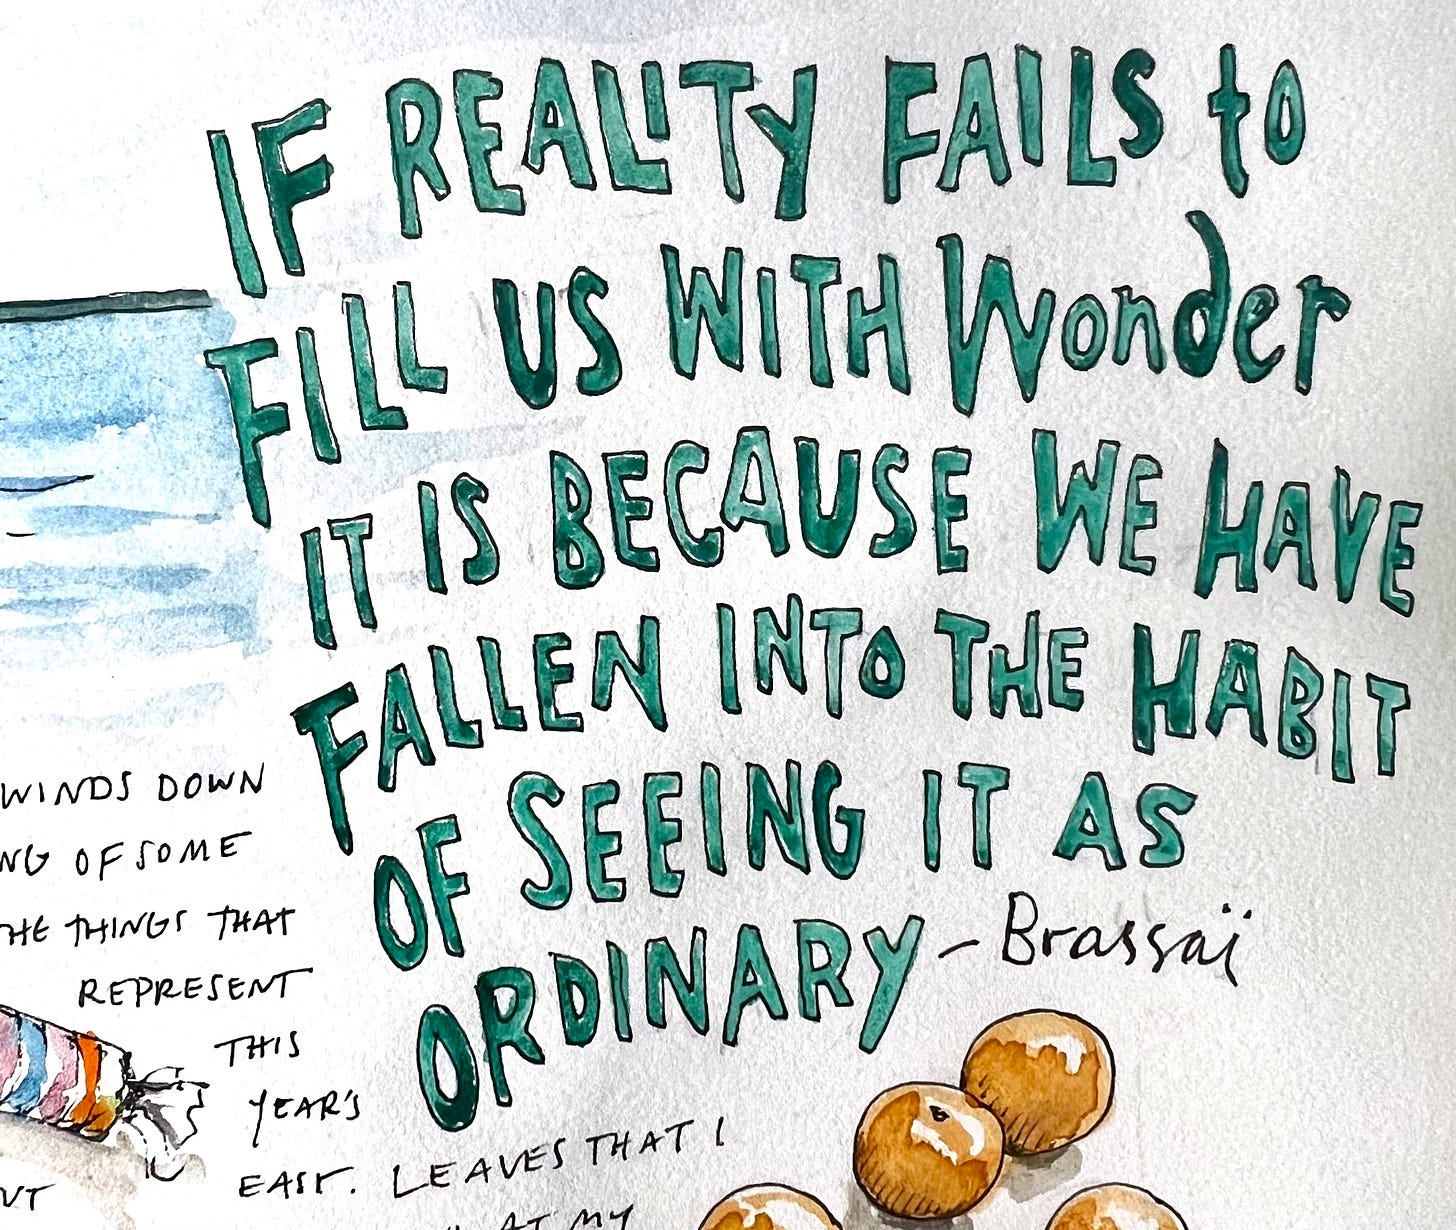 IF REALITY FAILS to
FILL US WITH Wonder
IT IS BECAUSE WE HAVE
FALLEN INTO THE HABIT
OF SEEING IT AS
ORDINARY - Brassaï
WINDS DOWN
OF SOME
THINGS THAT
REPRESENT
THIS
YEAR'S
EAST. LEAVES THAT I
AT MY